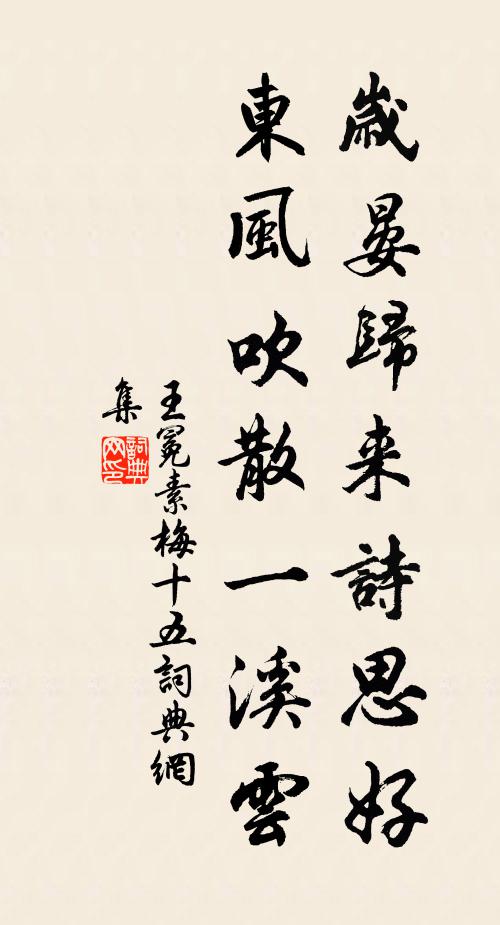 歲晏歸来詩思好
東風吹散一溪雲
王冕素梅十五詞典網
集
詞典
网印